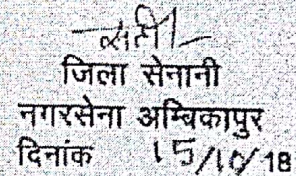 जिला सेनानी
नगरसेना अम्बिकापुर
दिनांक 15/10/18